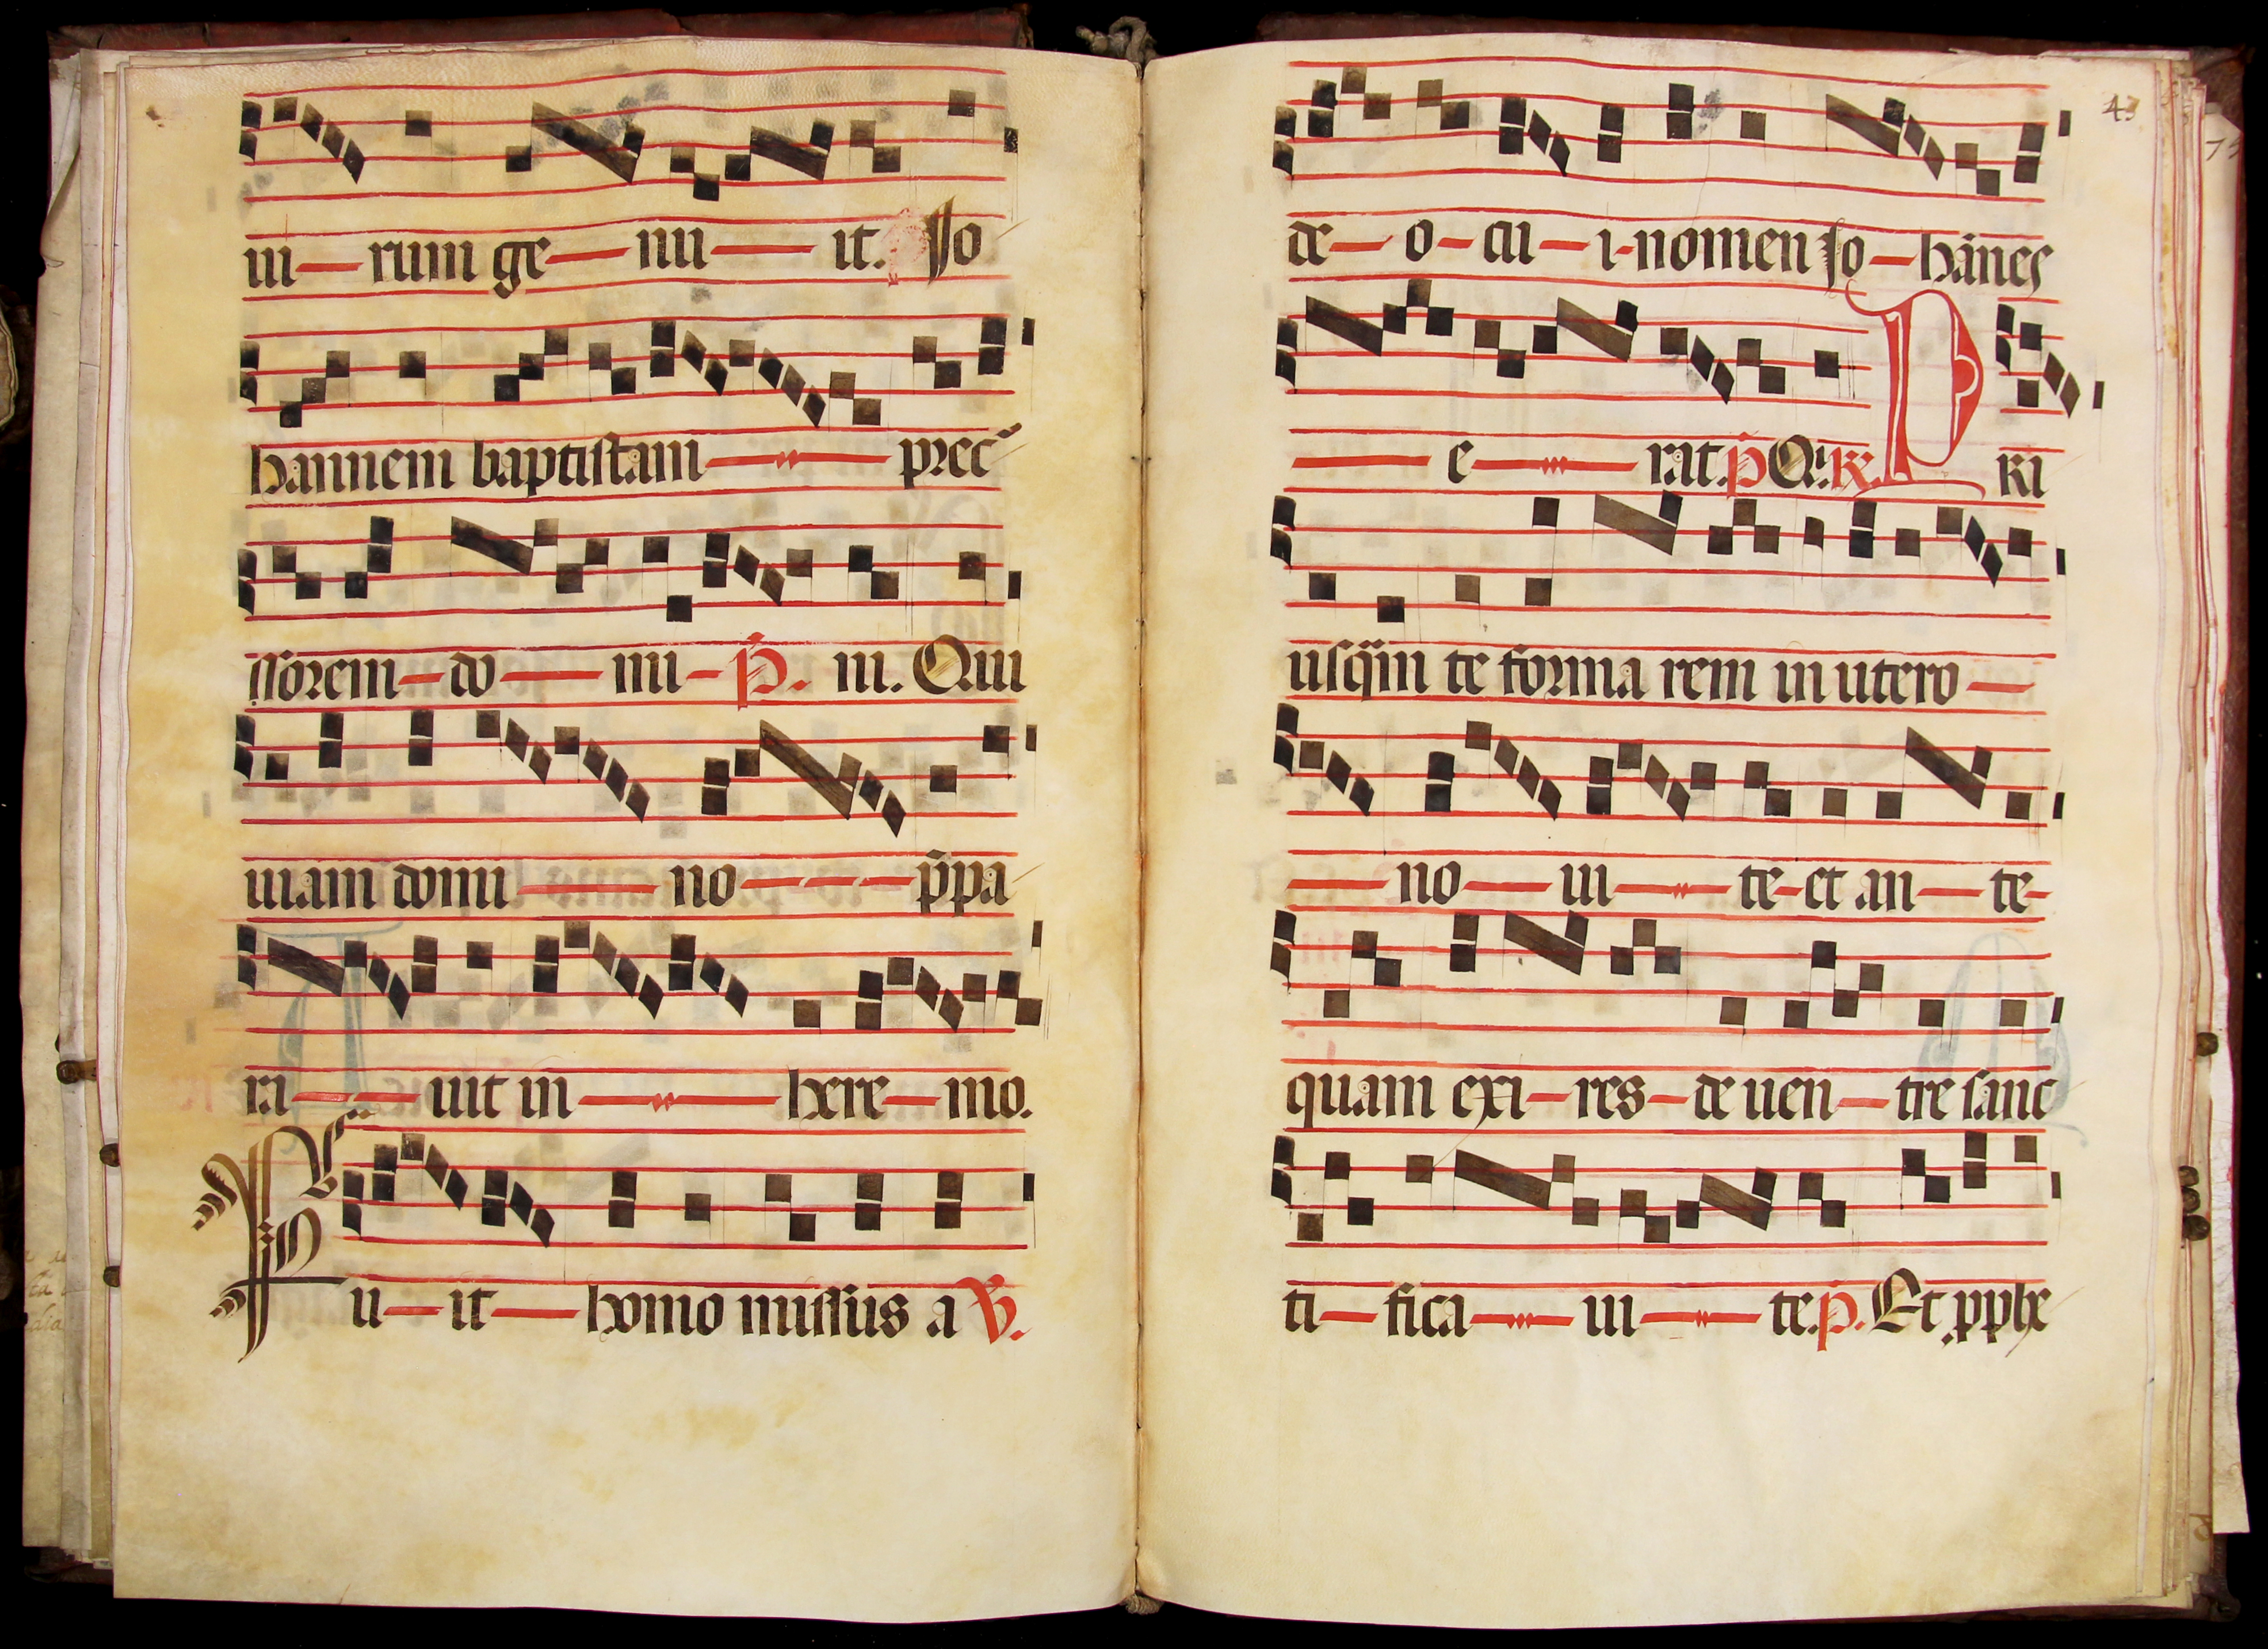 ui—rum ge—nu—it. Jo
hannem baptistam — prec
ssorem—do—mi—P. iii. Qui
uiam domi—no—p̄pa
ra—uit in—here—mo.
R̃
Fu—it—homo missus a V.
43
de—o—cu—i-nomen Jo—hānes
—e—rat. p̄ Qi. R̃. P RI
usq̄m te forma rem in utero—
—no—ui—te-et an—te-
quam exi—res—de uen—tre sanc
ti—fica—ui—te. p. Et, pphe